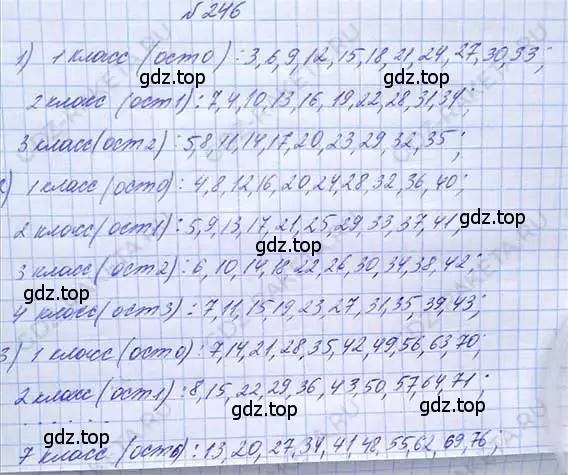 № 246
1) 1 класс (ост0) : 3,6,9,12,15,18,21,24,27,30,33;
gdz.top gdz.top
2 класс (ост1) : 7,4,10,13,16, 19,22,28,31,34;
gdz.top
3 класс(ост2) : 5,8,11,14,17,20,23,29,32,35;
2) 1 класс(ост0) : 4,8,12,16,20,24,28,32,36,40;
gdz.top gdz.top
2 класс(ост1) : 5,9,13,17,21,25,29,33,37,41;
gdz.top
3 класс(ост2) : 6,10,14,18,22,26,30,34,38,42;
gdz.top
4 класс(ост3) : 7,11,15,19,23,27,31,35,39,43;
gdz.top
3) 1 класс(ост0) : 7,14,21,28,35,42,49,56,63,70;
gdz.top
2 класс (ост1) : 8,15,22,29,36,43,50,57,64,71;
gdz.top
7 класс (ост6) : 13,20,27,34,41,48,55,62,69,76;
gdz.top